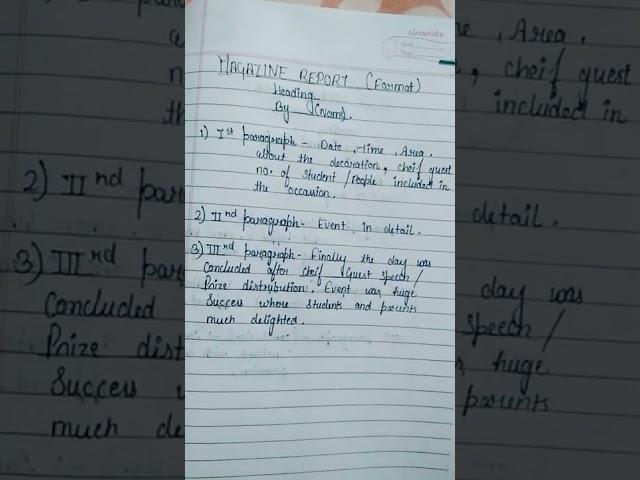 classmate
Date
Page
MAGAZINE REPORT (Format)
Heading
By (Name).
1) Ist paragraph - Date, time, Area,
about the decoration, cheif guest
no. of student / People included in
the occasion.
2) IInd paragraph - Event in detail.
3) IIIrd paragraph - Finally the day was
Concluded after cheif Guest speech /
Prize distribution. Event was huge
Success whose students and parents
much delighted.